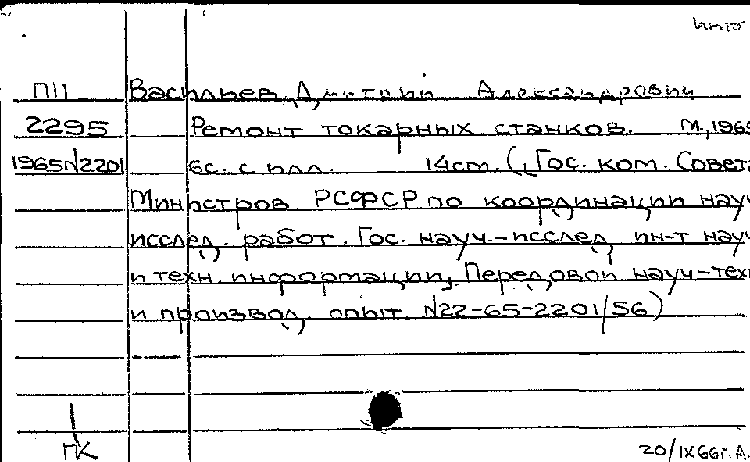 ПП Васильев, Дмитрий Александрович
2295 Ремонт токарных станков. М, 1965
1965 N2201 6с. с илл. 14см. (Гос. ком. Совета
Министров РСФСР по координации науч
исслед. работ. Гос. науч-исслед. ин-т науч
и техн. информации. Передовой науч-техн
и производ. опыт. N22-65-2201/56)
ГК 20/IX 66г. А.